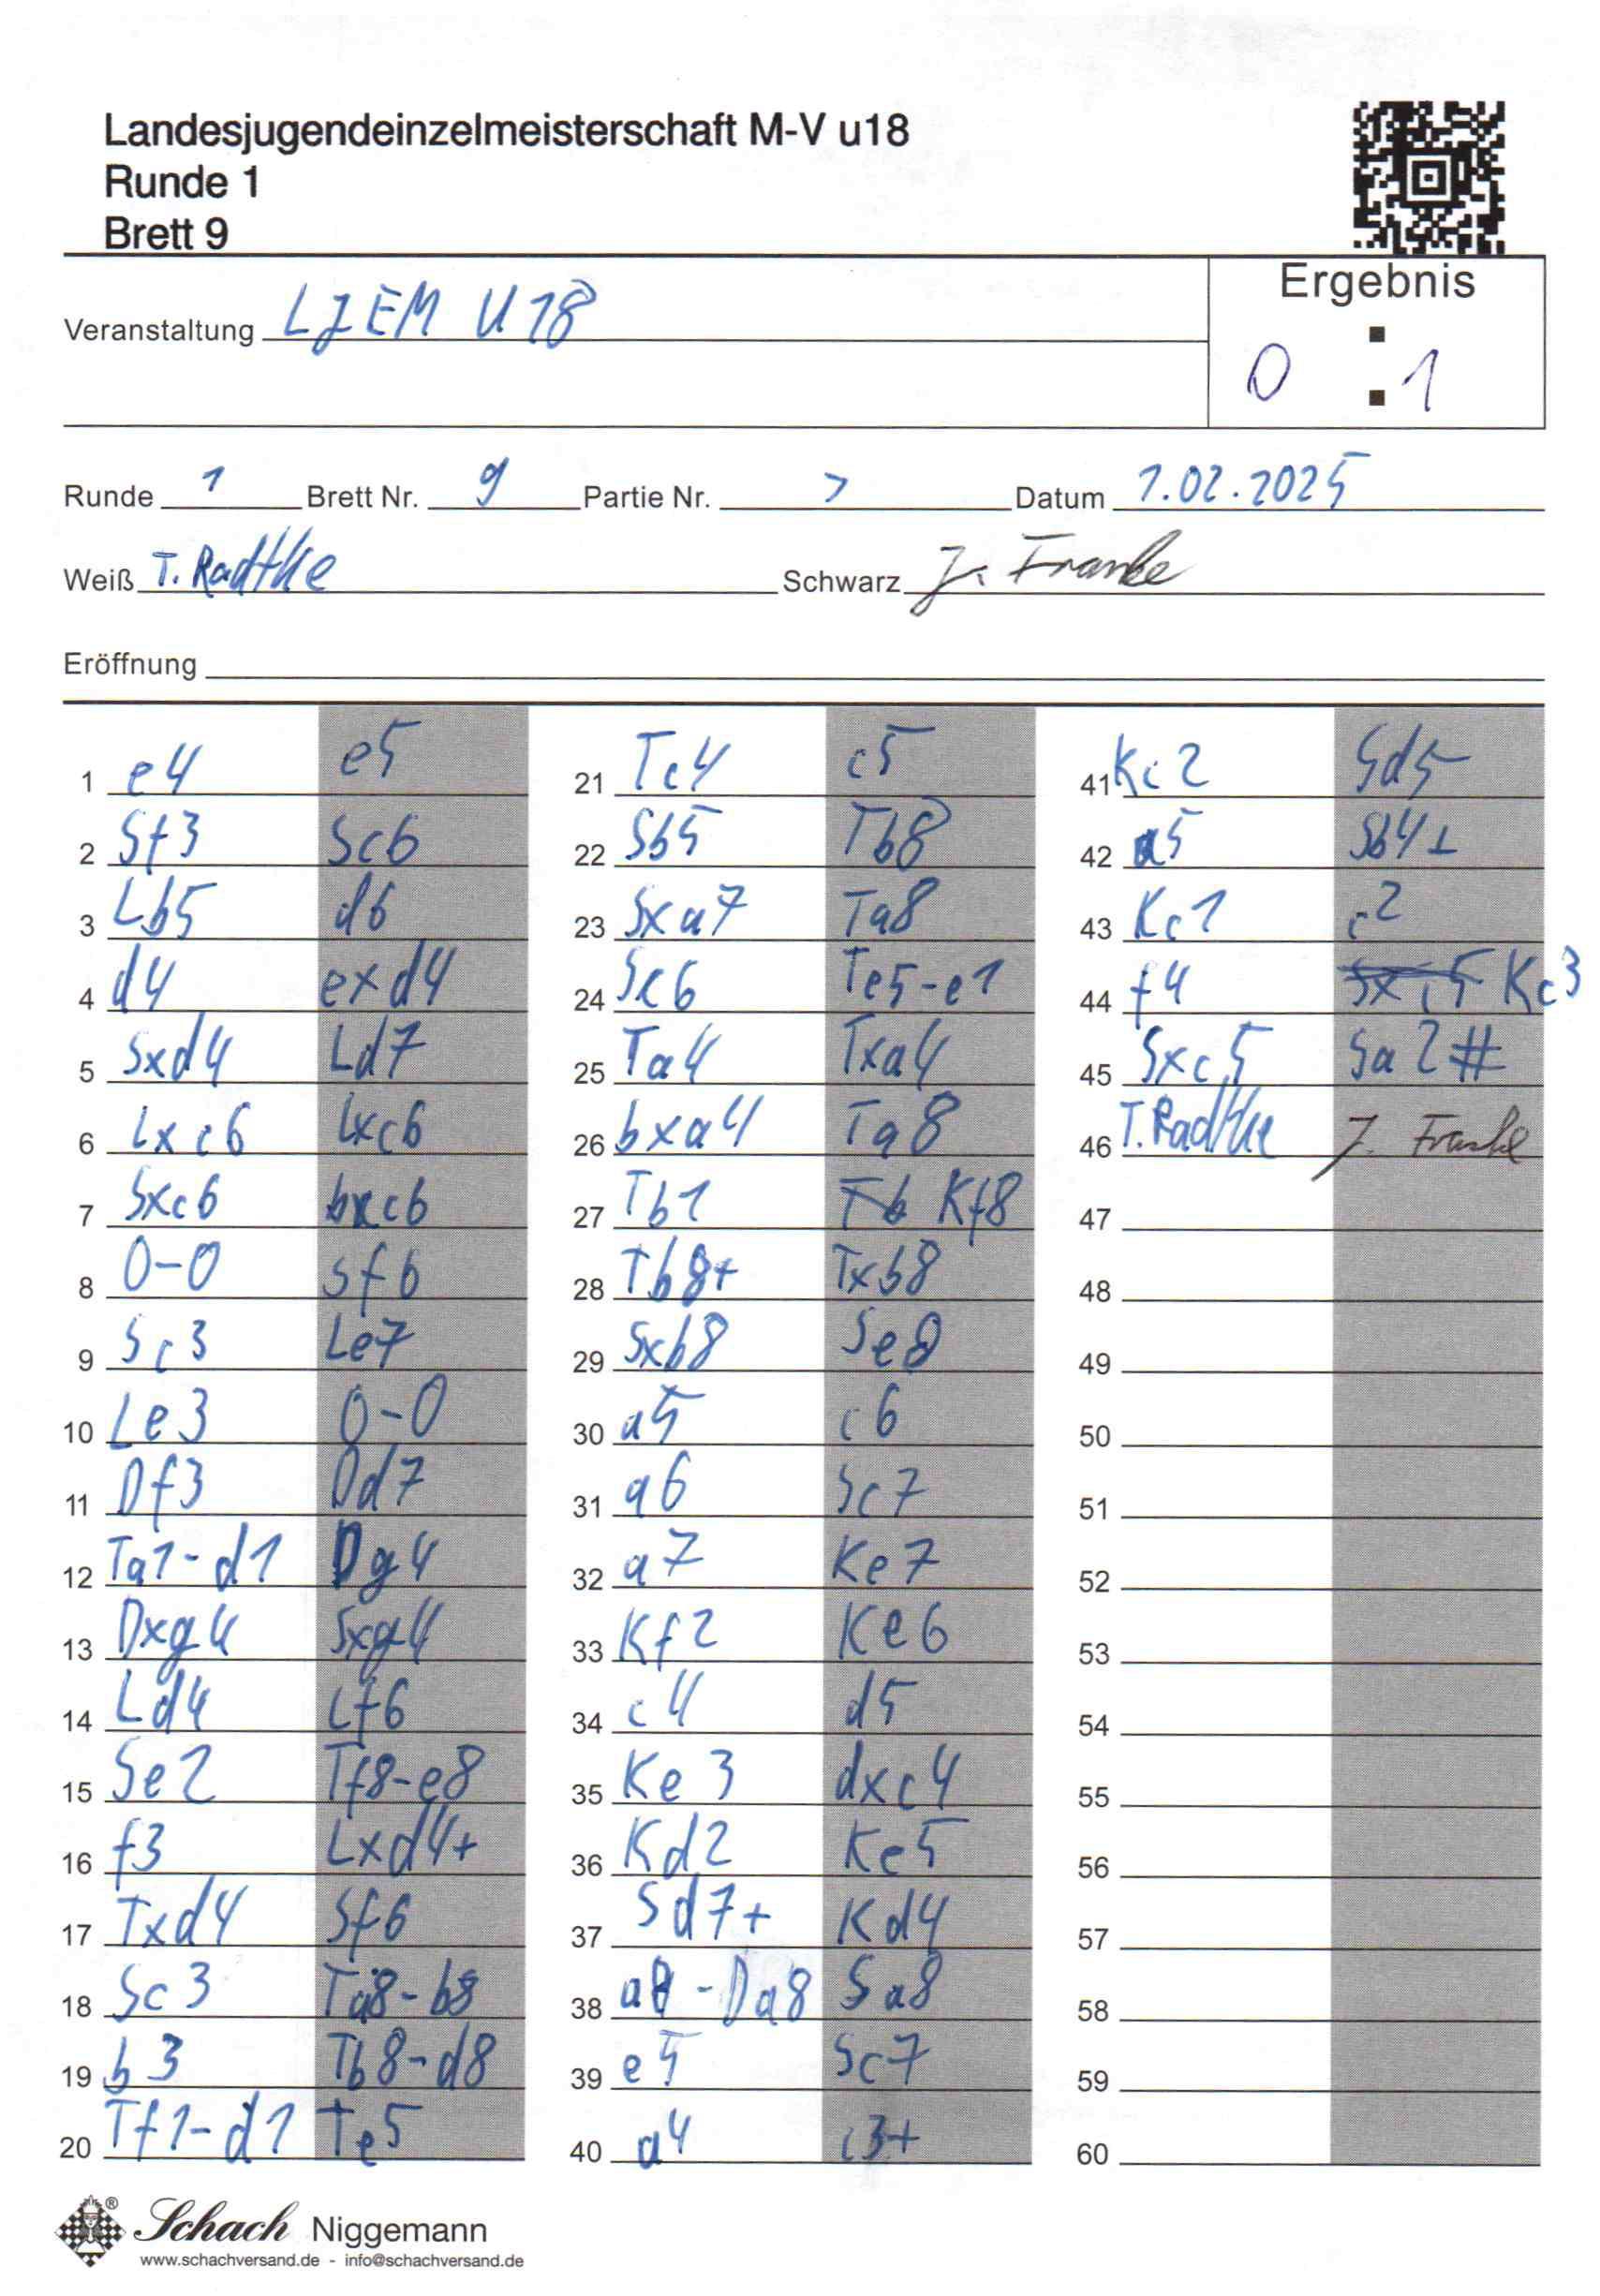 Landesjugendeinzelmeisterschaft M-V u18
Runde 1
Brett 9
Ergebnis
Veranstaltung LJEM U18
0 : 1
Runde 1 Brett Nr. 9 Partie Nr. Datum 1.02.2025
Weiß T. Radtke Schwarz J. Franke
Eröffnung
1 e4 e5
2 Sf3 Sc6
3 Lb5 d6
4 d4 exd4
5 Sxd4 Ld7
6 Lxc6 Lxc6
7 Sxc6 bxc6
8 0-0 Sf6
9 Sc3 Le7
10 Le3 0-0
11 Df3 Dd7
12 Ta1-d1 Dg4
13 Dxg4 Sxg4
14 Ld4 Lf6
15 Se2 Tf8-e8
16 f3 Lxd4+
17 Txd4 Sf6
18 Sc3 Ta8-b8
19 b3 Tb8-d8
20 Tf1-d1 Te5
21 Tc4 c5
22 Sb5 Tb8
23 Sxa7 Ta8
24 Sc6 Te5-e1
25 Ta4 Txa4
26 bxa4 Ta8
27 Tb1 Tb Kf8
28 Tb8+ Txb8
29 Sxb8 Se8
30 a5 c6
31 a6 Sc7
32 a7 Ke7
33 Kf2 Ke6
34 c4 d5
35 Ke3 dxc4
36 Kd2 Ke5
37 Sd7+ Kd4
38 a8-Da8 Sa8
39 e5 Sc7
40 a4 c3+
41 Kc2 Sd5
42 a5 Sb4+
43 Kc1 c2
44 f4 Kc3
45 Sxc5 Sa2#
46 T. Radtke J. Franke
47
48
49
50
51
52
53
54
55
56
57
58
59
60
® Schach Niggemann
www.schachversand.de - info@schachversand.de